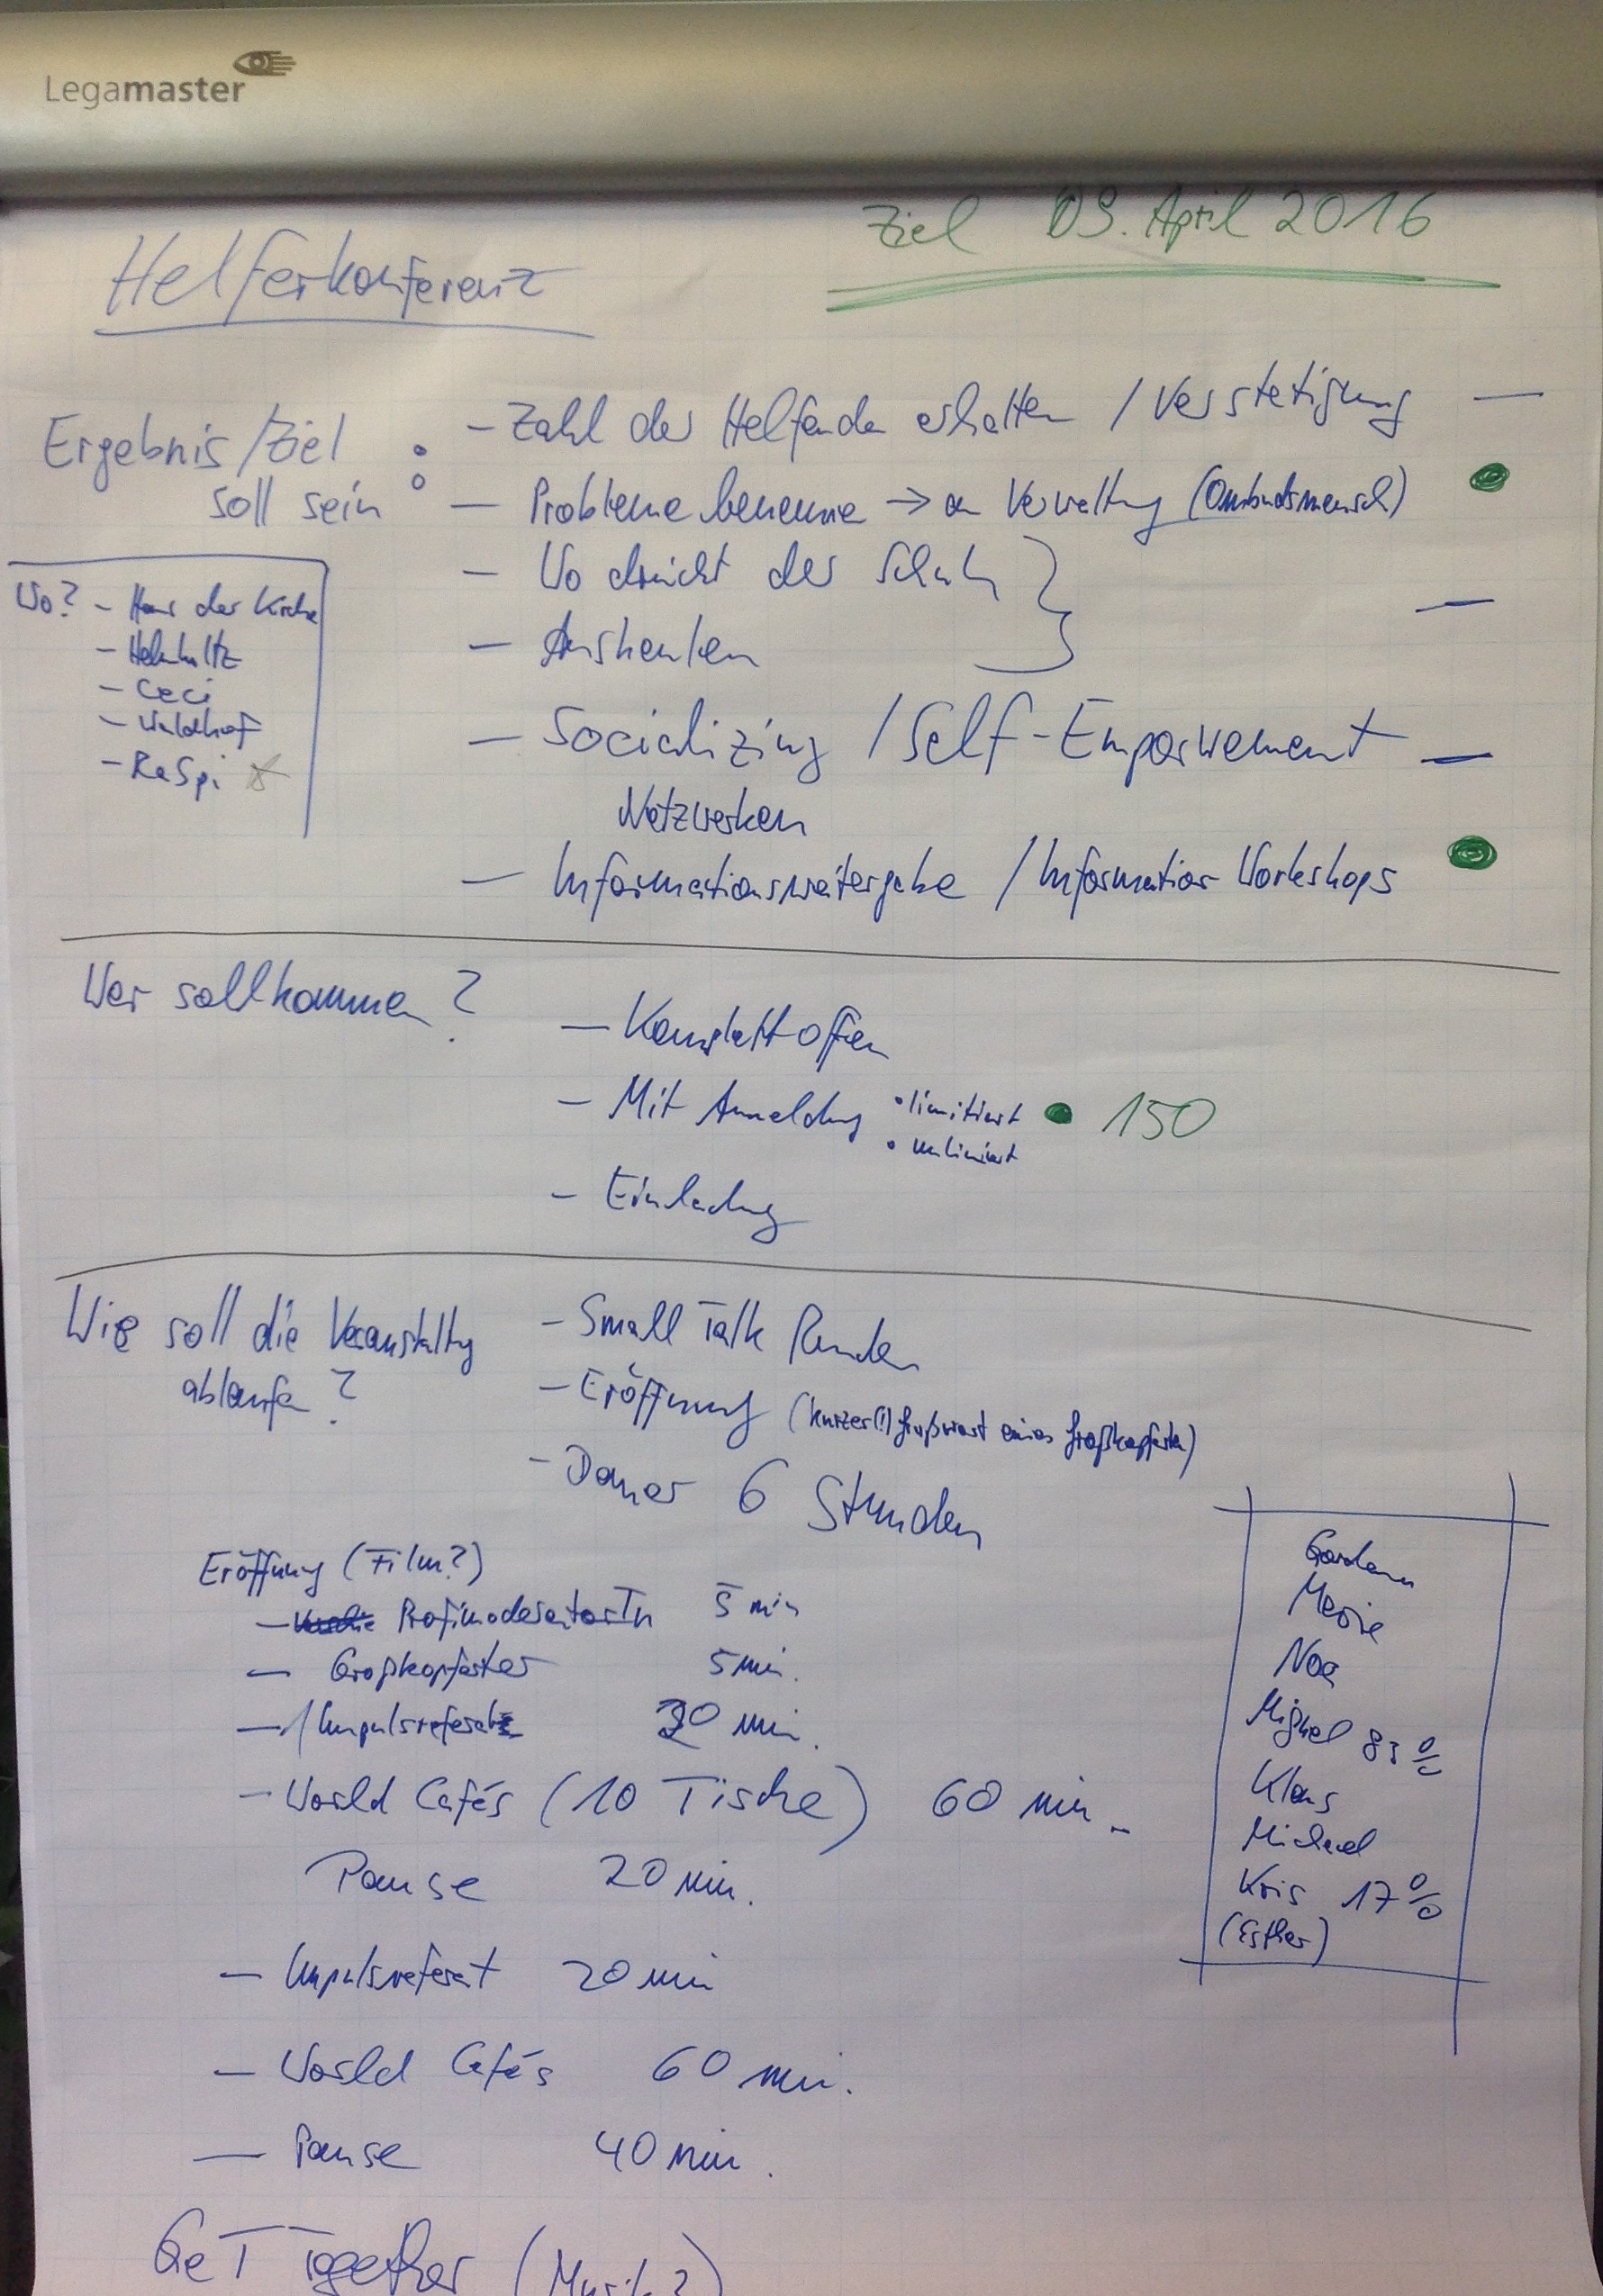 Legamaster
Ziel 09. April 2016
Helferkonferenz
Ergebnis/Ziel :
soll sein
- Zahl der Helfenden erhalten / Verstetigung -
- Probleme benennen → an Verwaltung (Ombudsmensch)
- Wo drückt der Schuh }
- Ausheulen -
- Socializing / Self-Empowerement -
Netzwerken
- Informationsweitergabe / Information Workshops
Wo? - Haus der Kirche
- Helmholtz
- Ceci
- Waldhof
- RaSpi
Wer soll kommen?
- Komplett offen
- Mit Anmeldung • limitiert • 150
• unlimitiert
- Einladung
Wie soll die Veranstaltung
ablaufen?
- Small Talk Runden
- Eröffnung (kurzer(!) Grußwort eines Großkopferten)
- Dauer 6 Stunden
Eröffnung (Film?)
- ProfimoderatorIn 5 min
- Großkopferter 5 min.
- 1 Impulsreferat 20 min.
- World Cafés (10 Tische) 60 min.
Pause 20 min.
- Impulsreferat 20 min
- World Cafés 60 min.
- Pause 40 min.
GeT Together (Musik?)
Marie
Noa
Miguel 83 %
Klaus
Michael
Kris 17 %
(Esther)